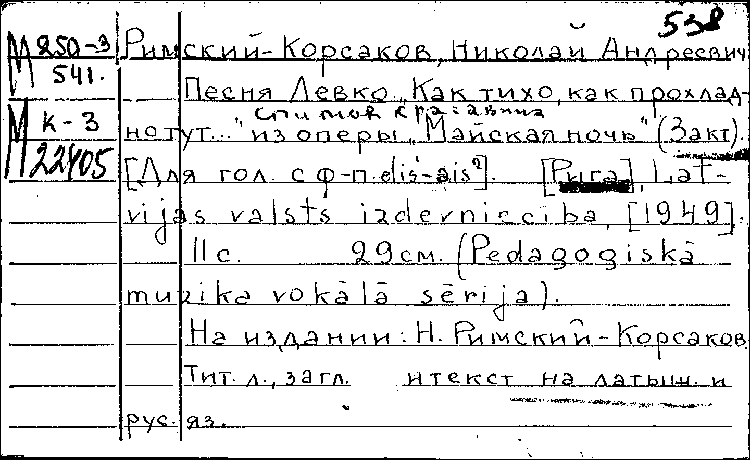 538
М 250-3
541.
М К-3
22405
Римский-Корсаков, Николай Андреевич
Песня Левко „Как тихо, как прохлад-
спи моя красавица
но тут..." из оперы „Майская ночь" (3акт).
[Для гол. с ф-п. dis¹-ais²]. [Рига], Lat-
vijas valsts izdevnieciba, [1949].
11 с. 29 см. (Pedagogiskā
muzika vokālā sērija).
На издании: Н. Римский-Корсаков.
Тит. л., загл. и текст на латыш. и
рус. яз.